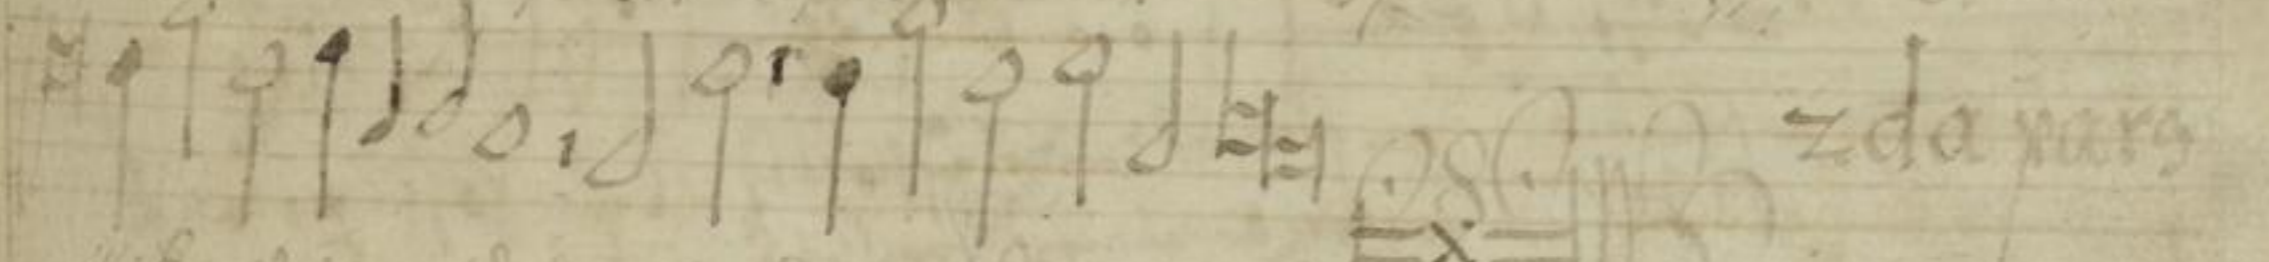 2da pars